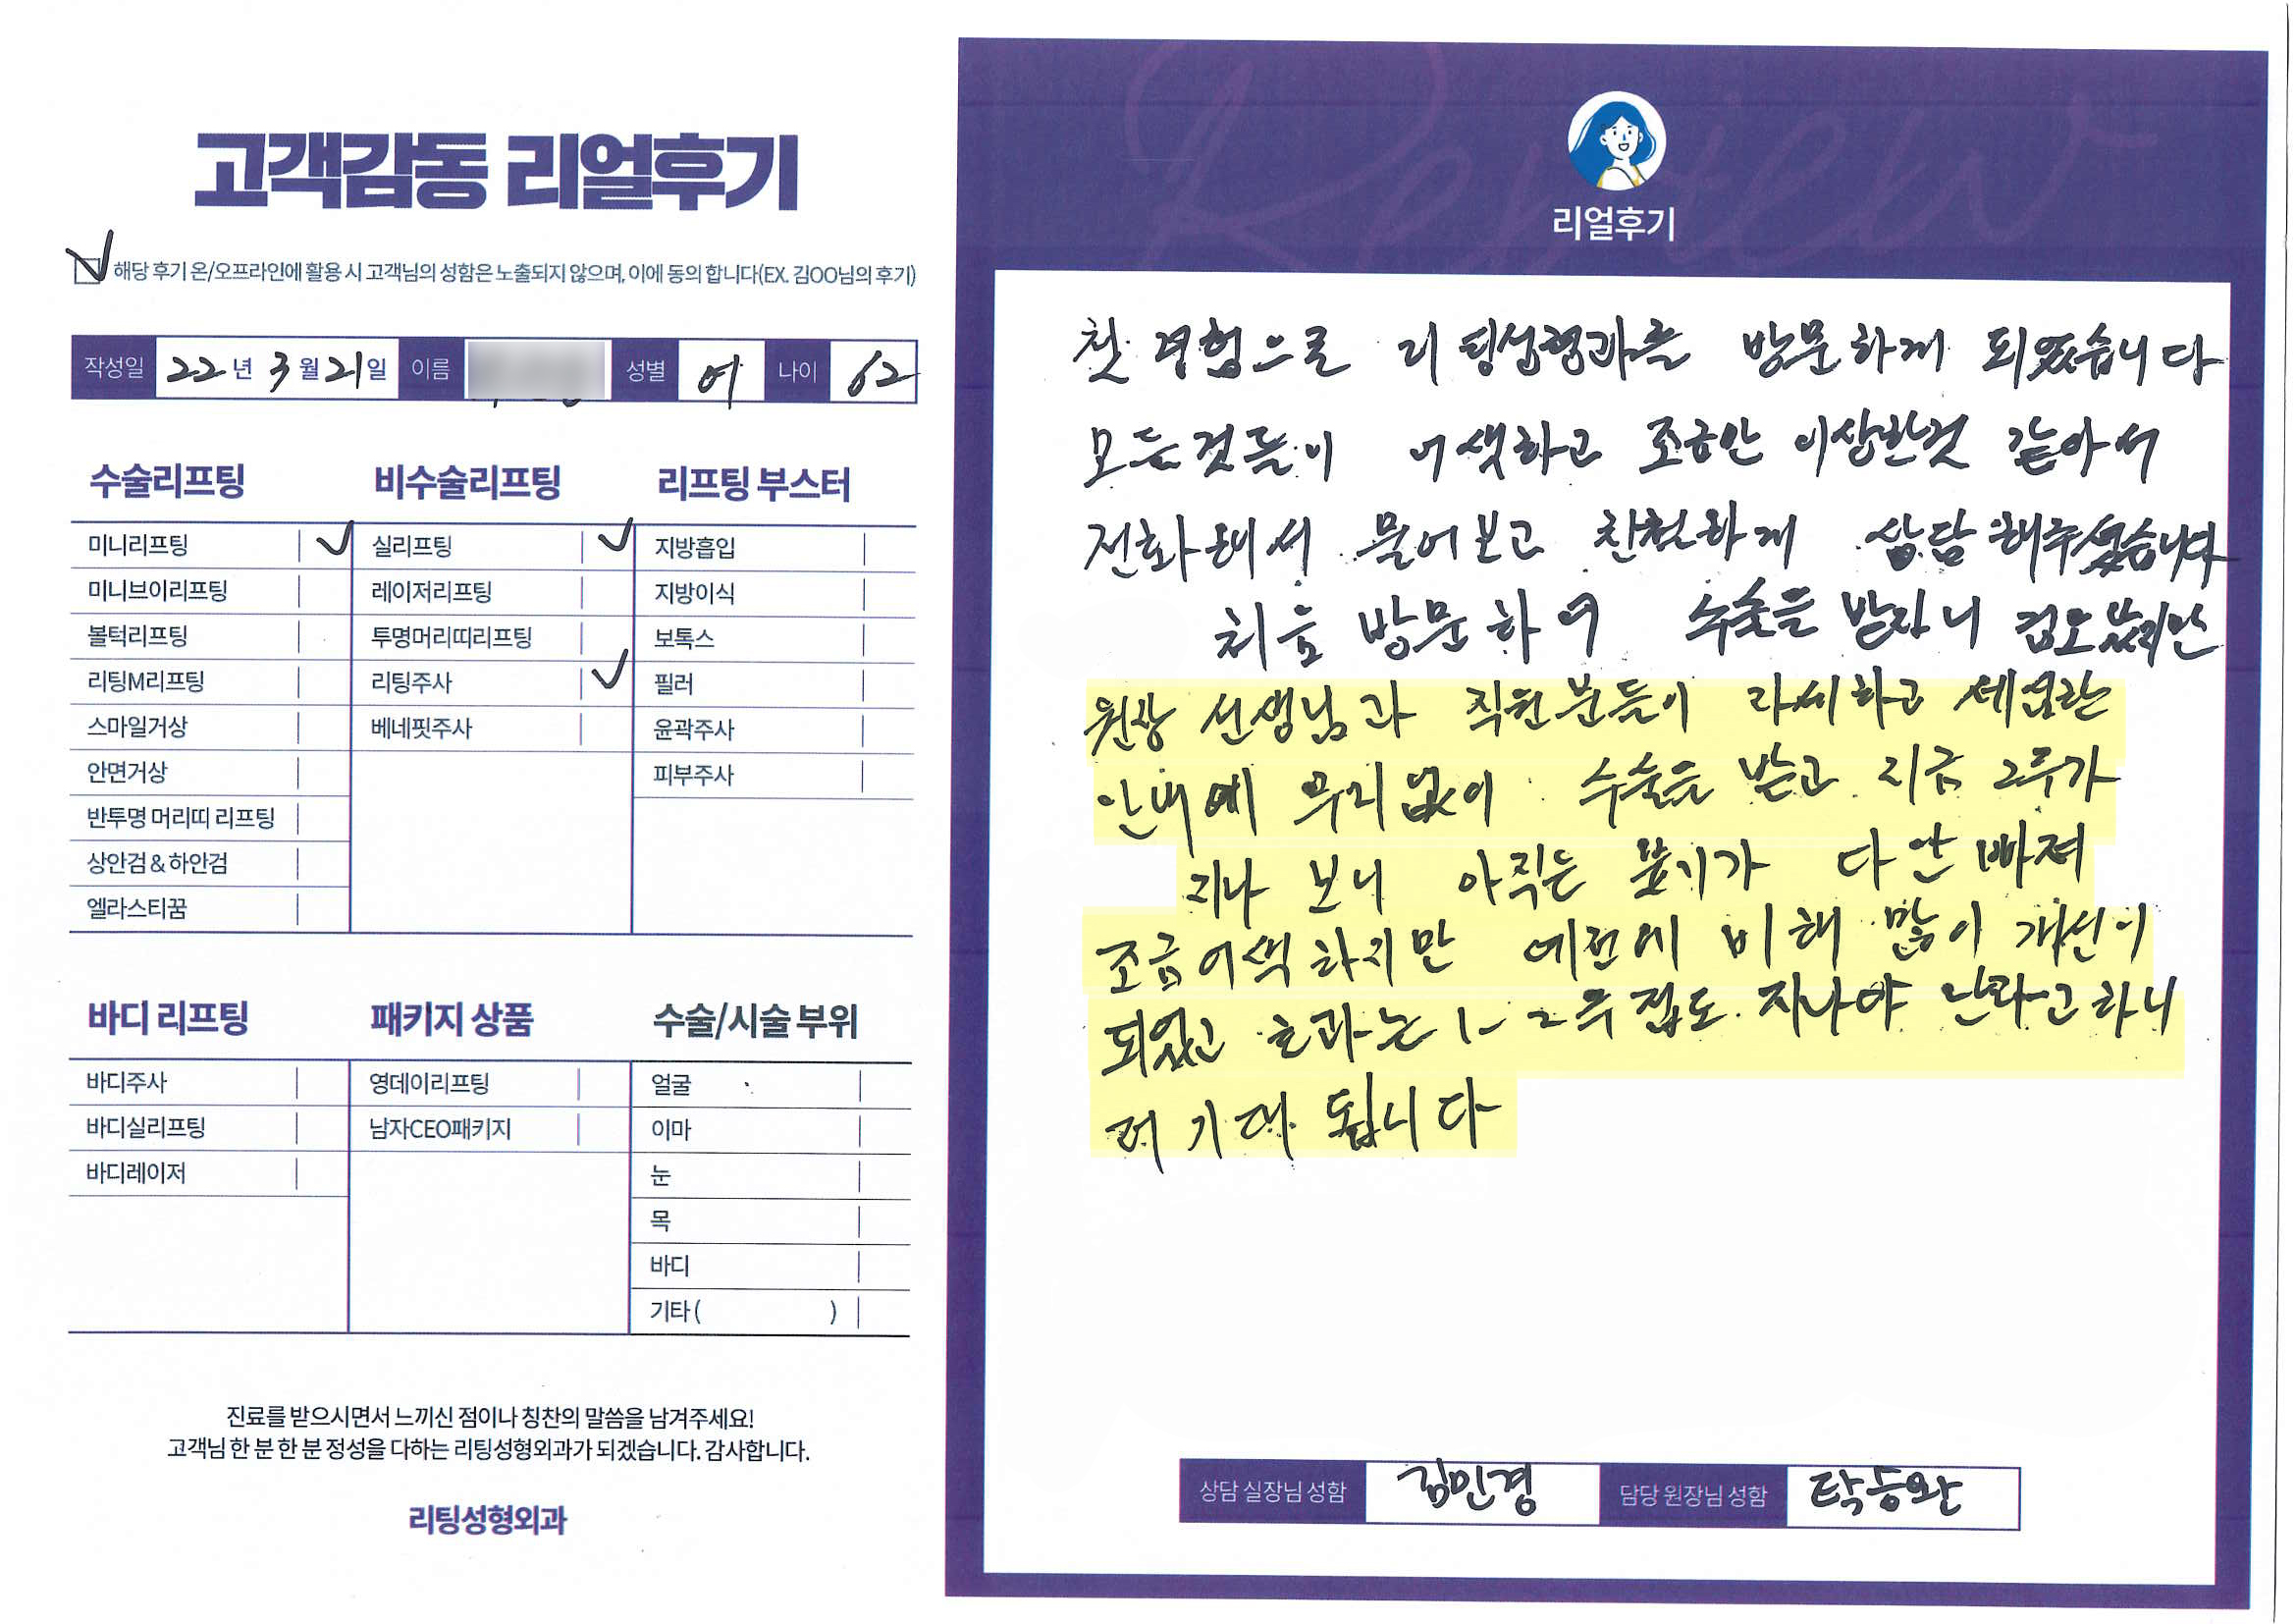 고객감동 리얼후기
해당 후기 온/오프라인에 활용 시 고객님의 성함은 노출되지 않으며, 이에 동의 합니다(EX. 김OO님의 후기)
작성일 22년 3월 21일 이름 성별 여 나이 62
수술리프팅
미니리프팅
미니브이리프팅
볼턱리프팅
리팅M리프팅
스마일거상
안면거상
반투명 머리띠 리프팅
상안검&하안검
엘라스티꿈
비수술리프팅
실리프팅
레이저리프팅
투명머리띠리프팅
리팅주사
베네핏주사
리프팅 부스터
지방흡입
지방이식
보톡스
필러
윤곽주사
피부주사
바디 리프팅
바디주사
바디실리프팅
바디레이저
패키지 상품
영데이리프팅
남자CEO패키지
수술/시술 부위
얼굴
이마
눈
목
바디
기타 ( )
진료를 받으시면서 느끼신 점이나 칭찬의 말씀을 남겨주세요!
고객님 한 분 한 분 정성을 다하는 리팅성형외과가 되겠습니다. 감사합니다.
리팅성형외과
Review
리얼후기
첫 경험으로 리팅성형과를 방문하게 되었습니다
모든것들이 어색하고 조금안 이상한것 같아서
전화해서 물어보고 친절하게 상담해주셨습니다
처음 방문하여 수술을 받자니 겁도 났지만
원장 선생님과 직원분들이 자세하고 세심한
안내에 무리없이 수술을 받고 지금 2주가
지나 보니 아직은 붓기가 다 안 빠져
조금 어색하지만 예전에 비해 많이 개선이
되었고 효과는 1~2주정도 지나야 난다고하니
더 기대 됩니다
상담 실장님 성함 김민경 담당 원장님 성함 탁승완